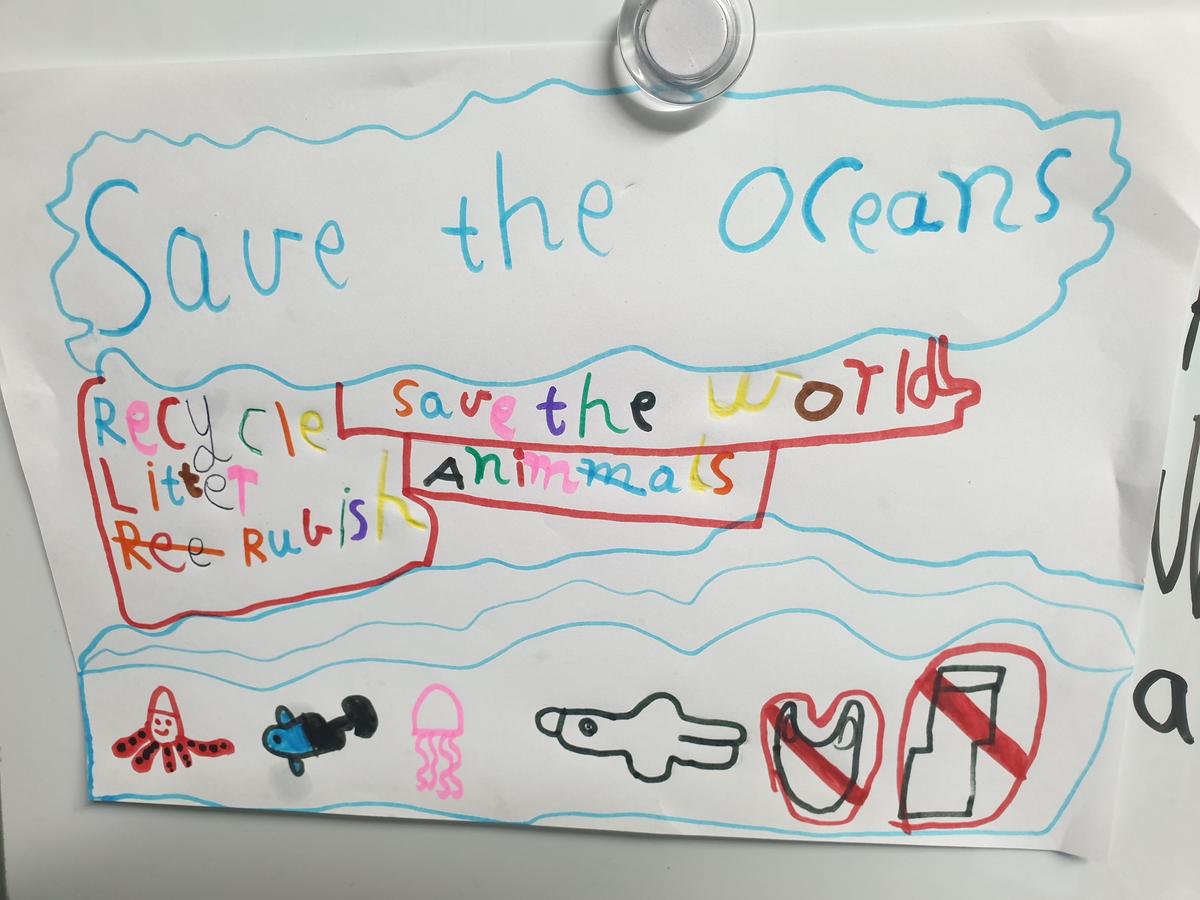 Save the Oceans
Recycle
Litter
Ree Rubish
Save the World
Animmals
a